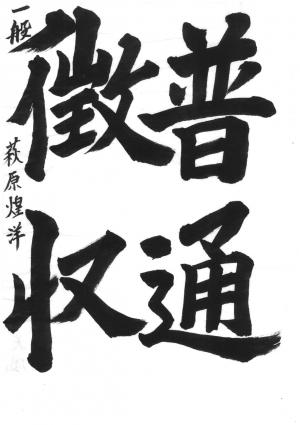 普通
徴収
一般 萩原煌洋